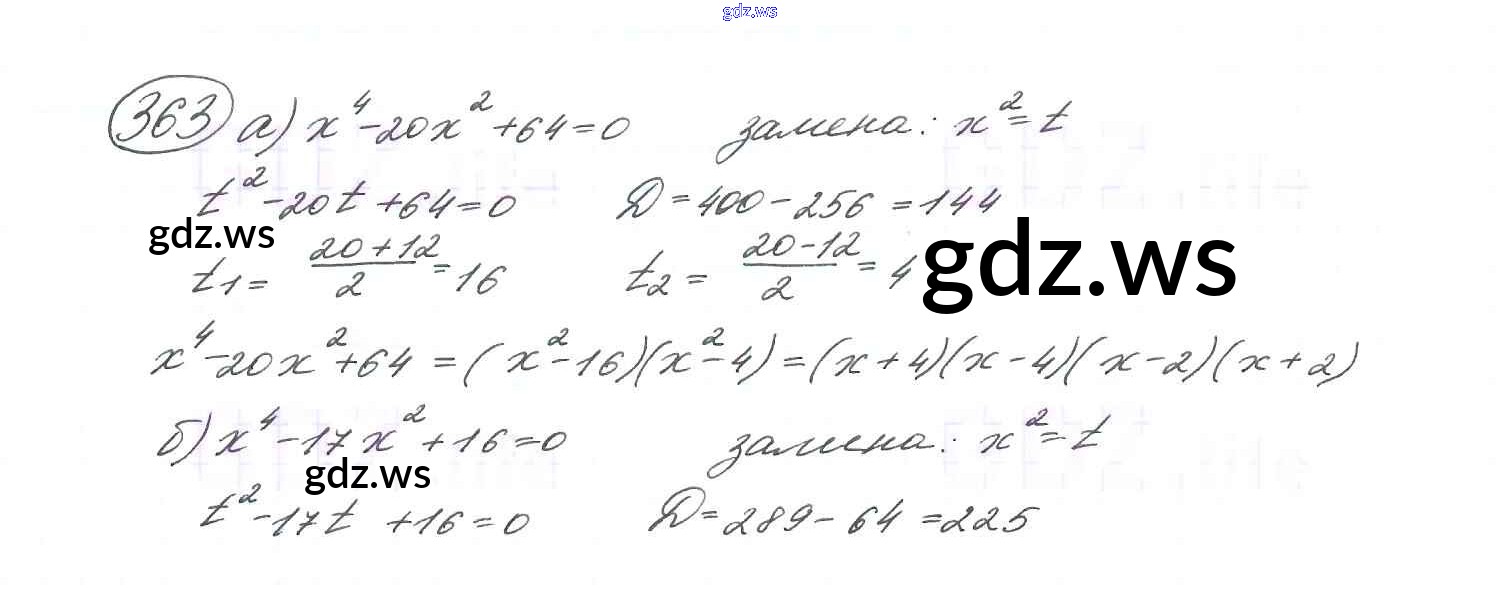 gdz.ws
363 а) x⁴-20x²+64=0 замена: x²=t
t²-20t+64=0 D=400-256=144
gdz.ws
t₁= (20+12)/2 =16 t₂= (20-12)/2 = 4
gdz.ws
x⁴-20x²+64=(x²-16)(x²-4)=(x+4)(x-4)(x-2)(x+2)
б) x⁴-17x²+16=0 замена: x²=t
gdz.ws
t²-17t +16=0 D=289-64=225